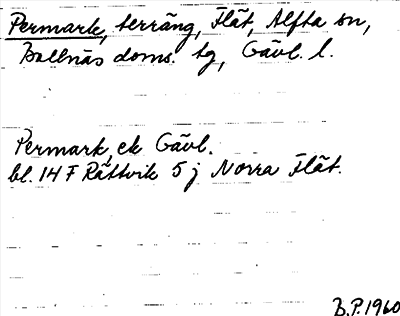 Permark, terräng, Flät, Alfta sn,
Bollnäs doms. tg, Gävl. l.
Permark, ek Gävl.
bl. 14 F Rättvik 5 j Norra Flät.
B.P. 1960